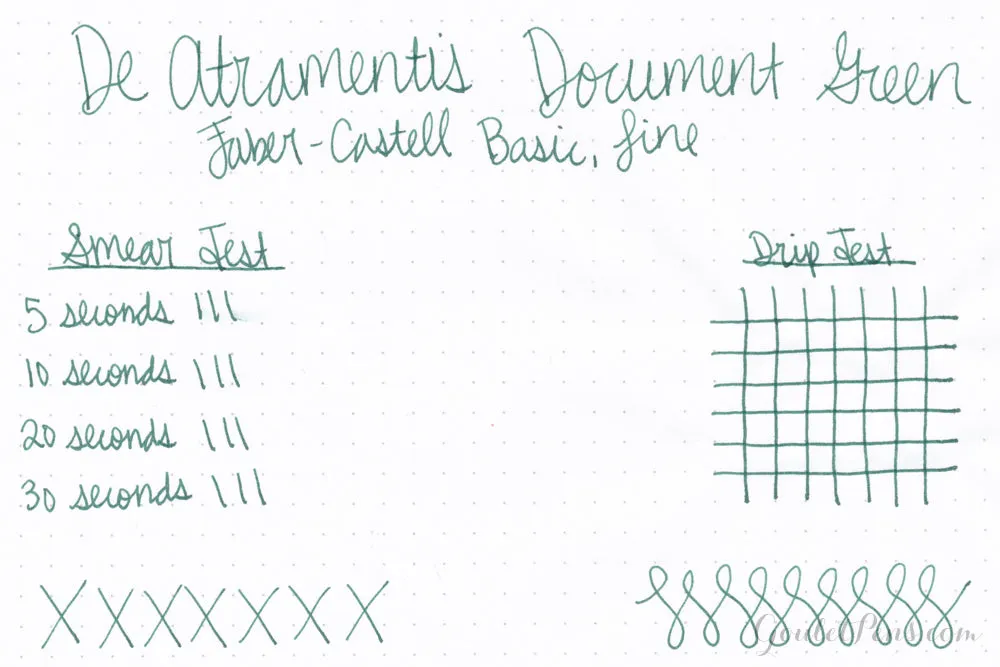 De Atramentis Document Green
Faber-Castell Basic, fine
Smear Test
Drip Test
5 seconds \ | |
10 seconds \ | |
20 seconds \ | |
30 seconds \ | |
X X X X X X X
GouletPens.com